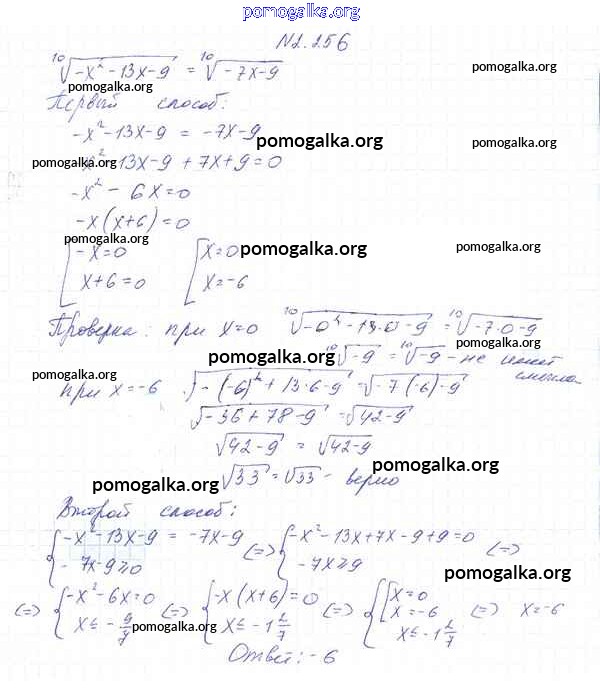 pomogalka.org
N2.256
¹⁰√(-x²-13x-9) = ¹⁰√(-7x-9)
pomogalka.org
pomogalka.org
Первый способ:
-x²-13x-9 = -7x-9
pomogalka.org
pomogalka.org
pomogalka.org
x²-13x-9+7x+9=0
-x²-6x=0
-x(x+6)=0
pomogalka.org
pomogalka.org
pomogalka.org
[-x=0 [x=0
x+6=0 x=-6
Проверка: при x=0 ¹⁰√(-0²-13·0-9) = ¹⁰√(-7·0-9)
pomogalka.org
¹⁰√-9 = ¹⁰√-9 - не имеет смысла
pomogalka.org
pomogalka.org
при x=-6 √(-(-6)²+13·6-9) = √(-7(-6)-9)
√(-36+78-9) = √(42-9)
√(42-9) = √(42-9)
√33 = √33 - верно
pomogalka.org
pomogalka.org
Второй способ:
{-x²-13x-9 = -7x-9 (=) {-x²-13x+7x-9+9=0 (=)
-7x-9≥0 -7x≥9
pomogalka.org
(=) {-x²-6x=0 (=) {-x(x+6)=0 (=) {[x=0 x=-6 (=) x=-6
x≤-9/7 x≤-1 2/7 x≤-1 2/7
pomogalka.org
Ответ: -6